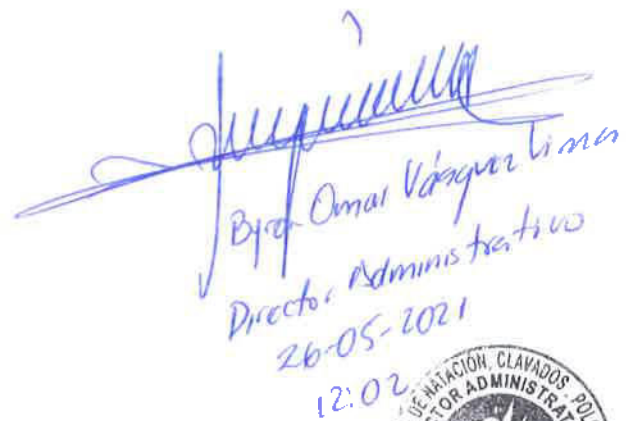 Byron Omar Vásquez Lima
Director Administrativo
26-05-2021
12:02
DE NATACIÓN, CLAVADOS, POLO